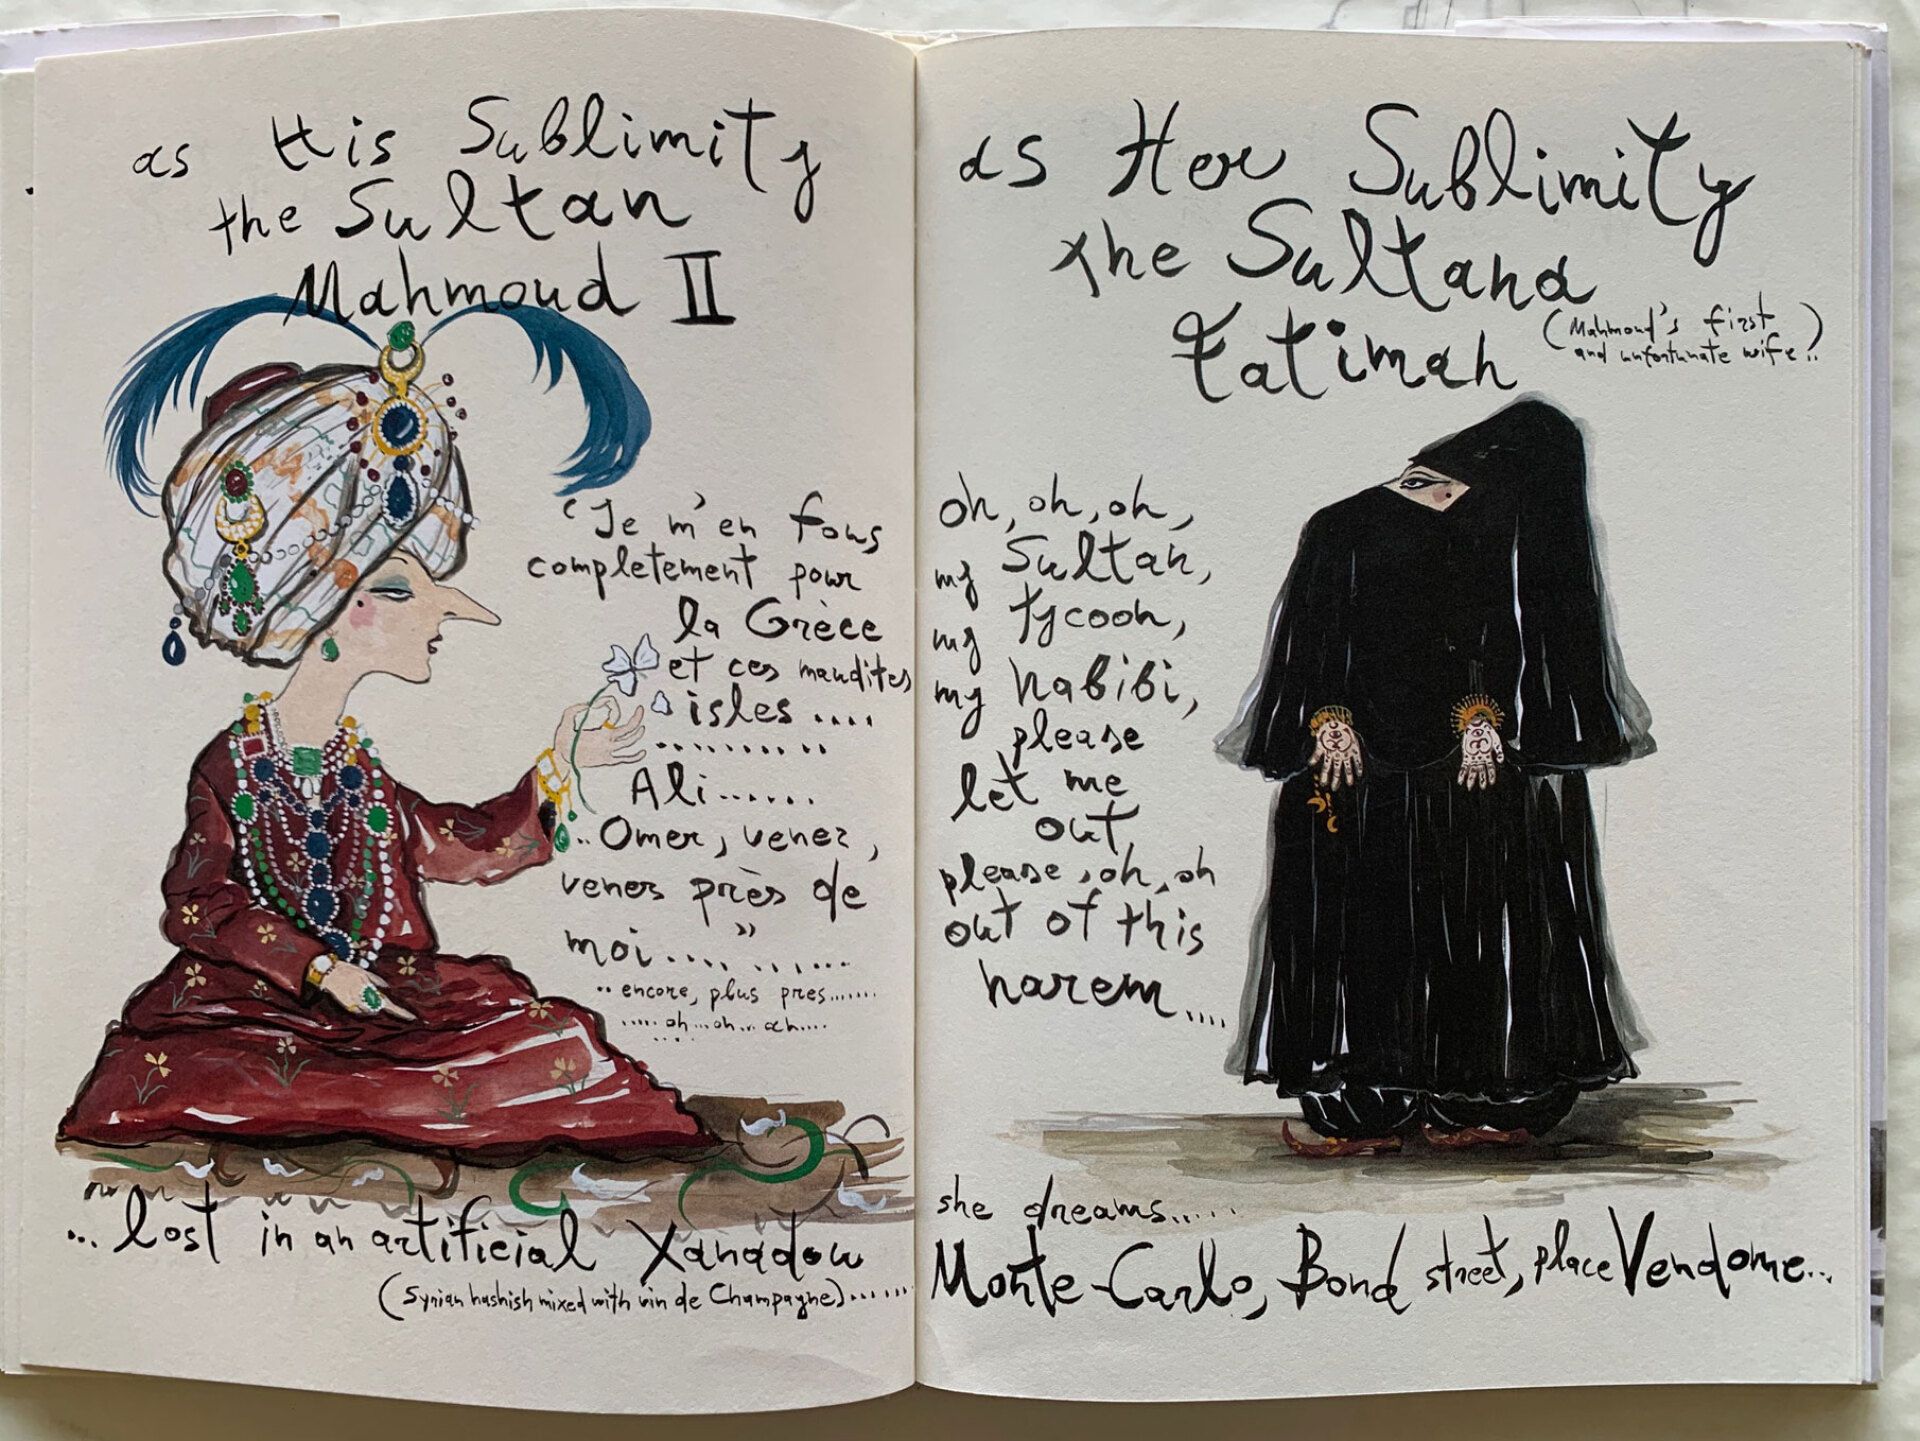 as His Sublimity
the Sultan
Mahmoud II
"Je m'en fous
completement pour
la Grèce
et ces maudites
isles ....
.........
Ali......
..Omer, venez,
venez près de
moi...." ......
.. encore, plus pres.......
..... oh...oh... ah....
....
... lost in an artificial Xanadou
(Syrian hashish mixed with vin de Champagne).......
as Her Sublimity
the Sultana
Fatimah
(Mahmoud's first
and unfortunate wife..)
oh, oh, oh,
my Sultan,
my tycoon,
my habibi,
please
let me
out,
please, oh, oh
out of this
harem....
she dreams.....
Monte-Carlo, Bond street, place Vendome...